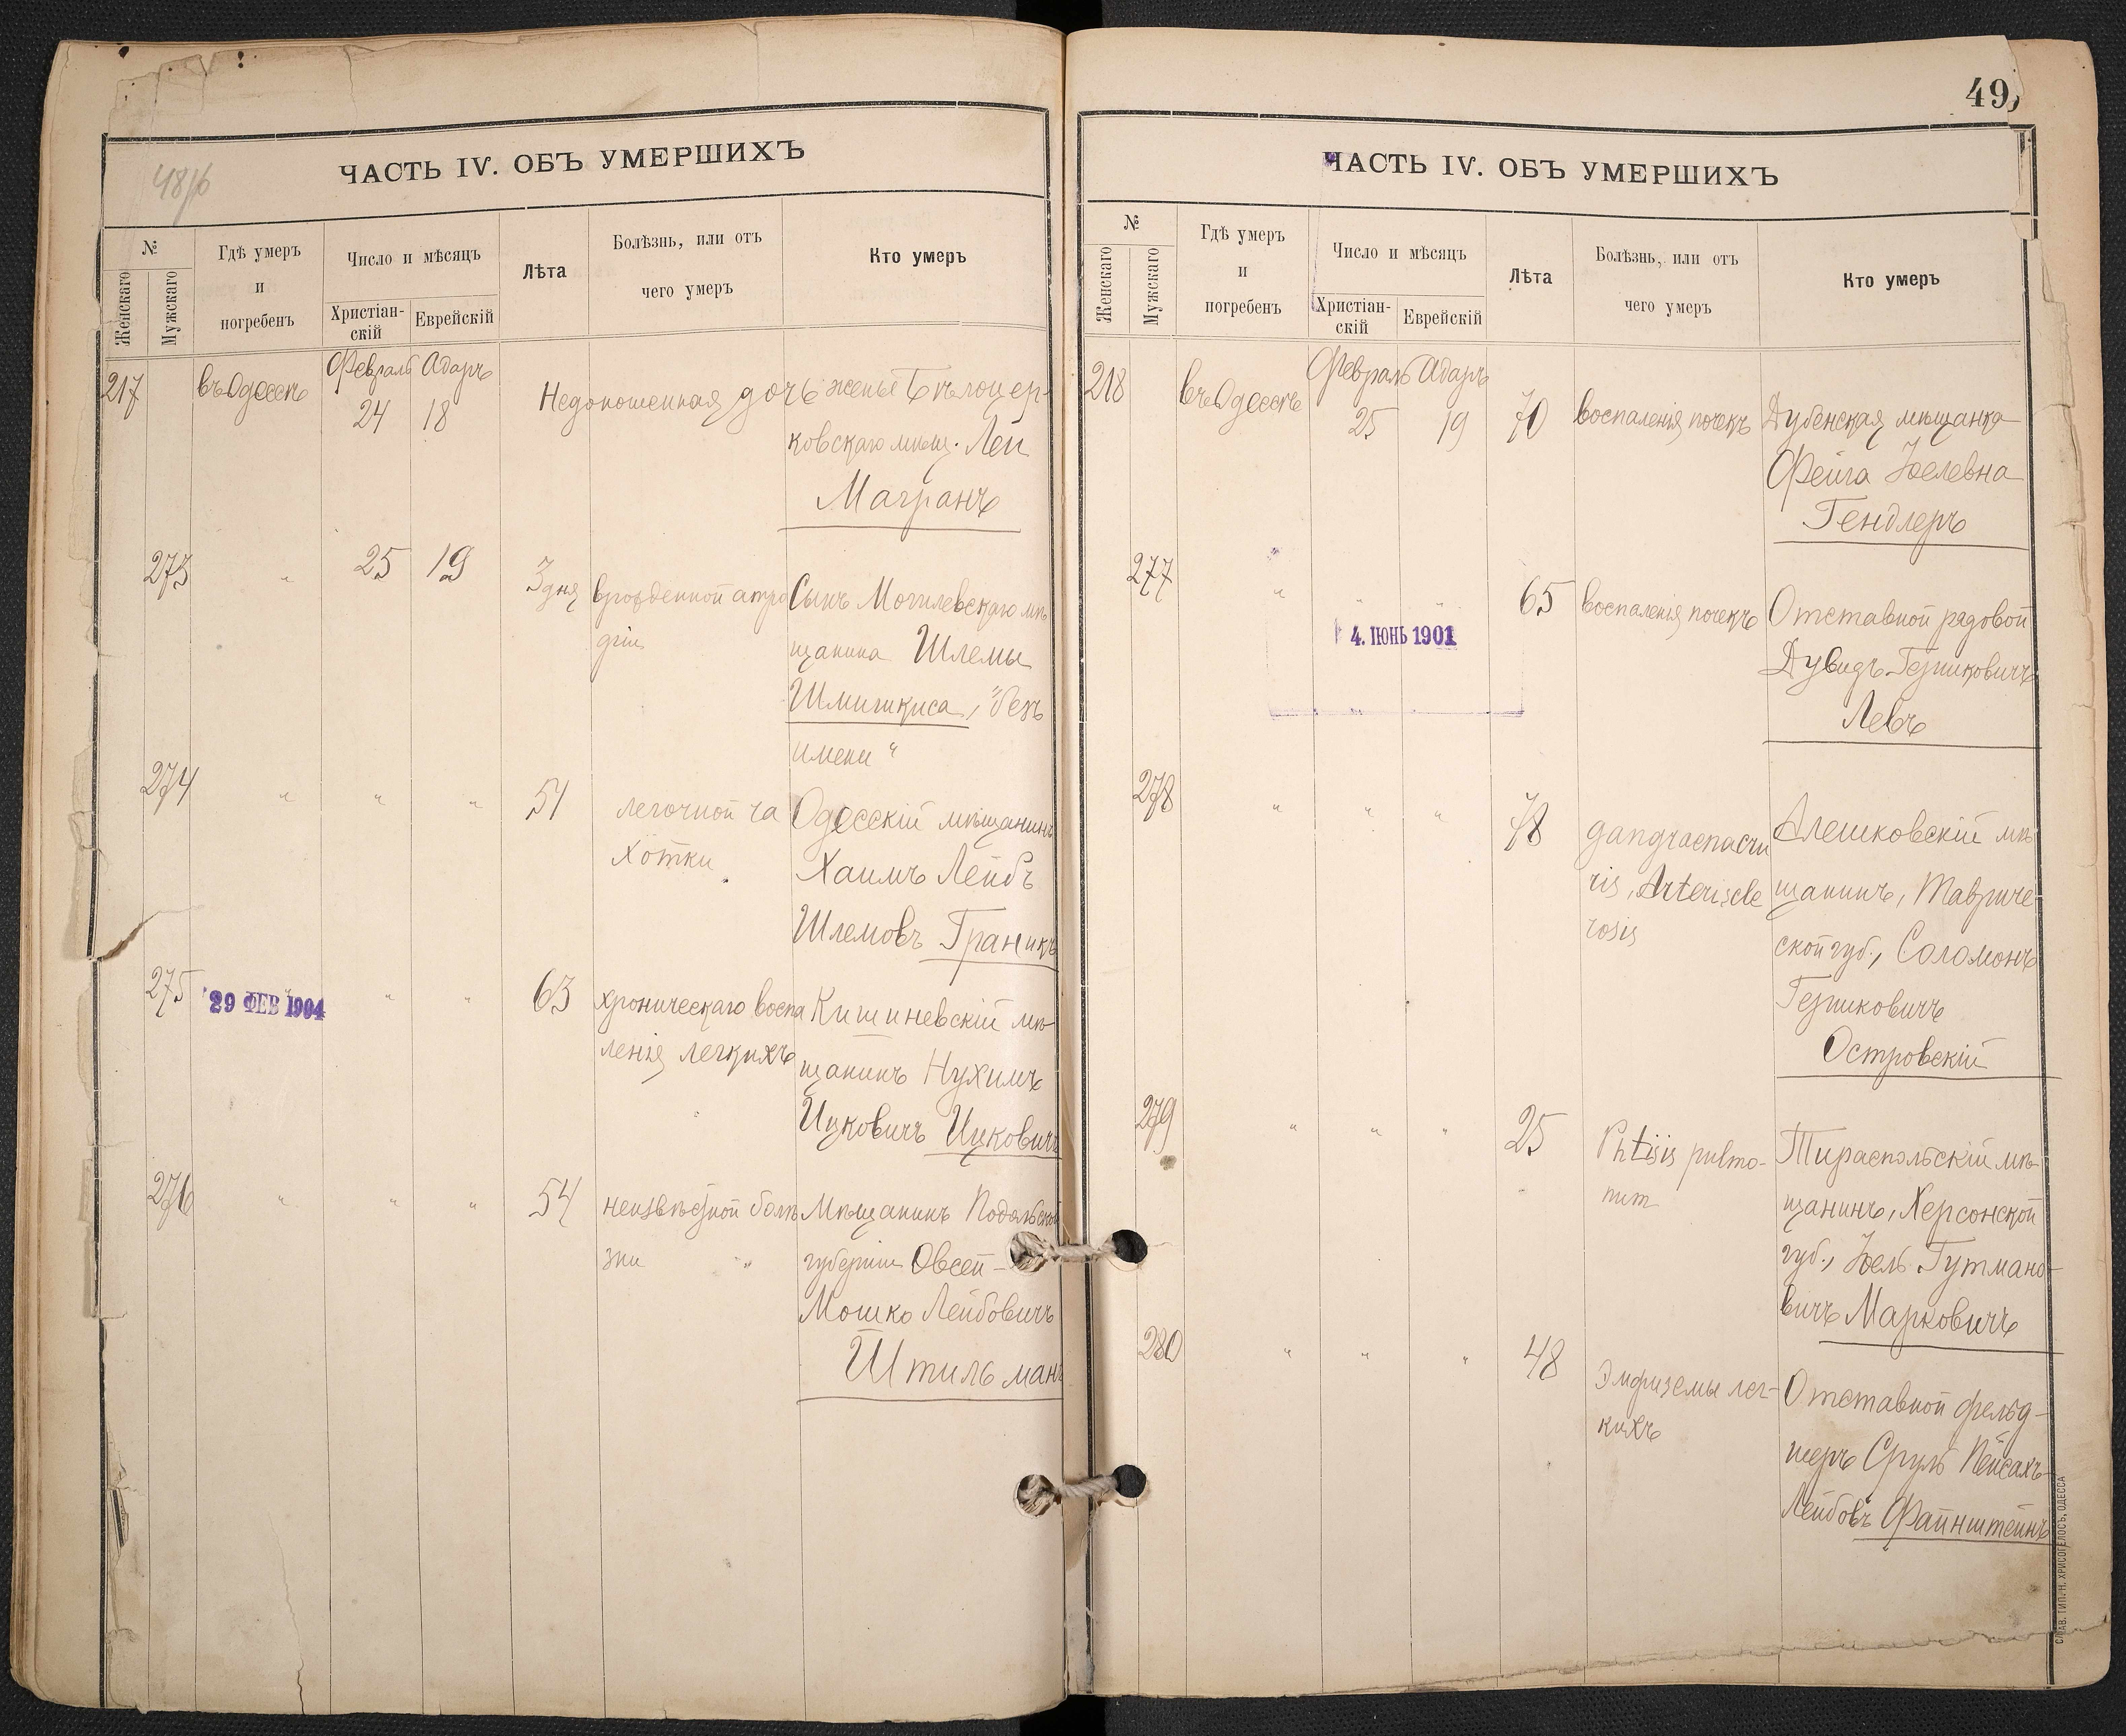 48/6
ЧАСТЬ IV. ОБЪ УМЕРШИХЪ
№
Женскаго
Мужскаго
Гдѣ умеръ
и
погребенъ
Число и мѣсяцъ
Христіан-
скій
Еврейскій
Лѣта
Болѣзнь, или отъ
чего умеръ
Кто умеръ
217 въ Одессѣ Февраль Адаръ
24 18 Недоношенная дочь жены Бѣлоцер-
ковскаго мѣщ. Лей
Магранъ
273 " 25 19 3 дня врожденной атро Сынъ Могилевскаго мѣ
фіи щанина Шлемы
Шмигикиса, "безъ
имени"
274 " " " 51 легочной ча Одесскій мѣщанинъ
хотки Хаимъ Лейбъ
Шлемовъ Граникъ
275 29 ФЕВ 1904 " " 63 хроническаго воспа Кишиневскій мѣ-
ленія легкихъ щанинъ Нухимъ
Ицковичъ Ицковичъ
276 " " " 54 неизвѣстной болѣ Мѣщанинъ Подольской
зни губерніи Овсей-
Мошко Лейбовичъ
Штильманъ
49
ЧАСТЬ IV. ОБЪ УМЕРШИХЪ
№
Женскаго
Мужскаго
Гдѣ умеръ
и
погребенъ
Число и мѣсяцъ
Христіан-
скій
Еврейскій
Лѣта
Болѣзнь, или отъ
чего умеръ
Кто умеръ
218 въ Одессѣ Февраль Адаръ
25 19 70 воспаленія почекъ Дубенская мѣщанка
Фейга Іоелевна
Гендлеръ
277 " " " 65 воспаленія почекъ Отставной рядовой
4. ІЮНЬ 1901
Дувидъ Гершковичъ
Левъ
278 " " " 78 gangraena cru Алешковскій мѣ
ris, Arteriscle щанинъ, Тавриче-
rosis ской губ., Соломонъ
Гершковичъ
Островскій
279 " " " 25 Phtisis pulmo- Тираспольскій мѣ-
num щанинъ, Херсонской
губ., Іоель Гутмано-
вичъ Марковичъ
280 " " " 48 Эмфиземы лег- Отставной фельд-
кихъ шеръ Сруль Пейсахъ-
Лейбовъ Файнштейнъ
СЛАВ. ТИП. Н. ХРИСОГЕЛОСЪ, ОДЕССА